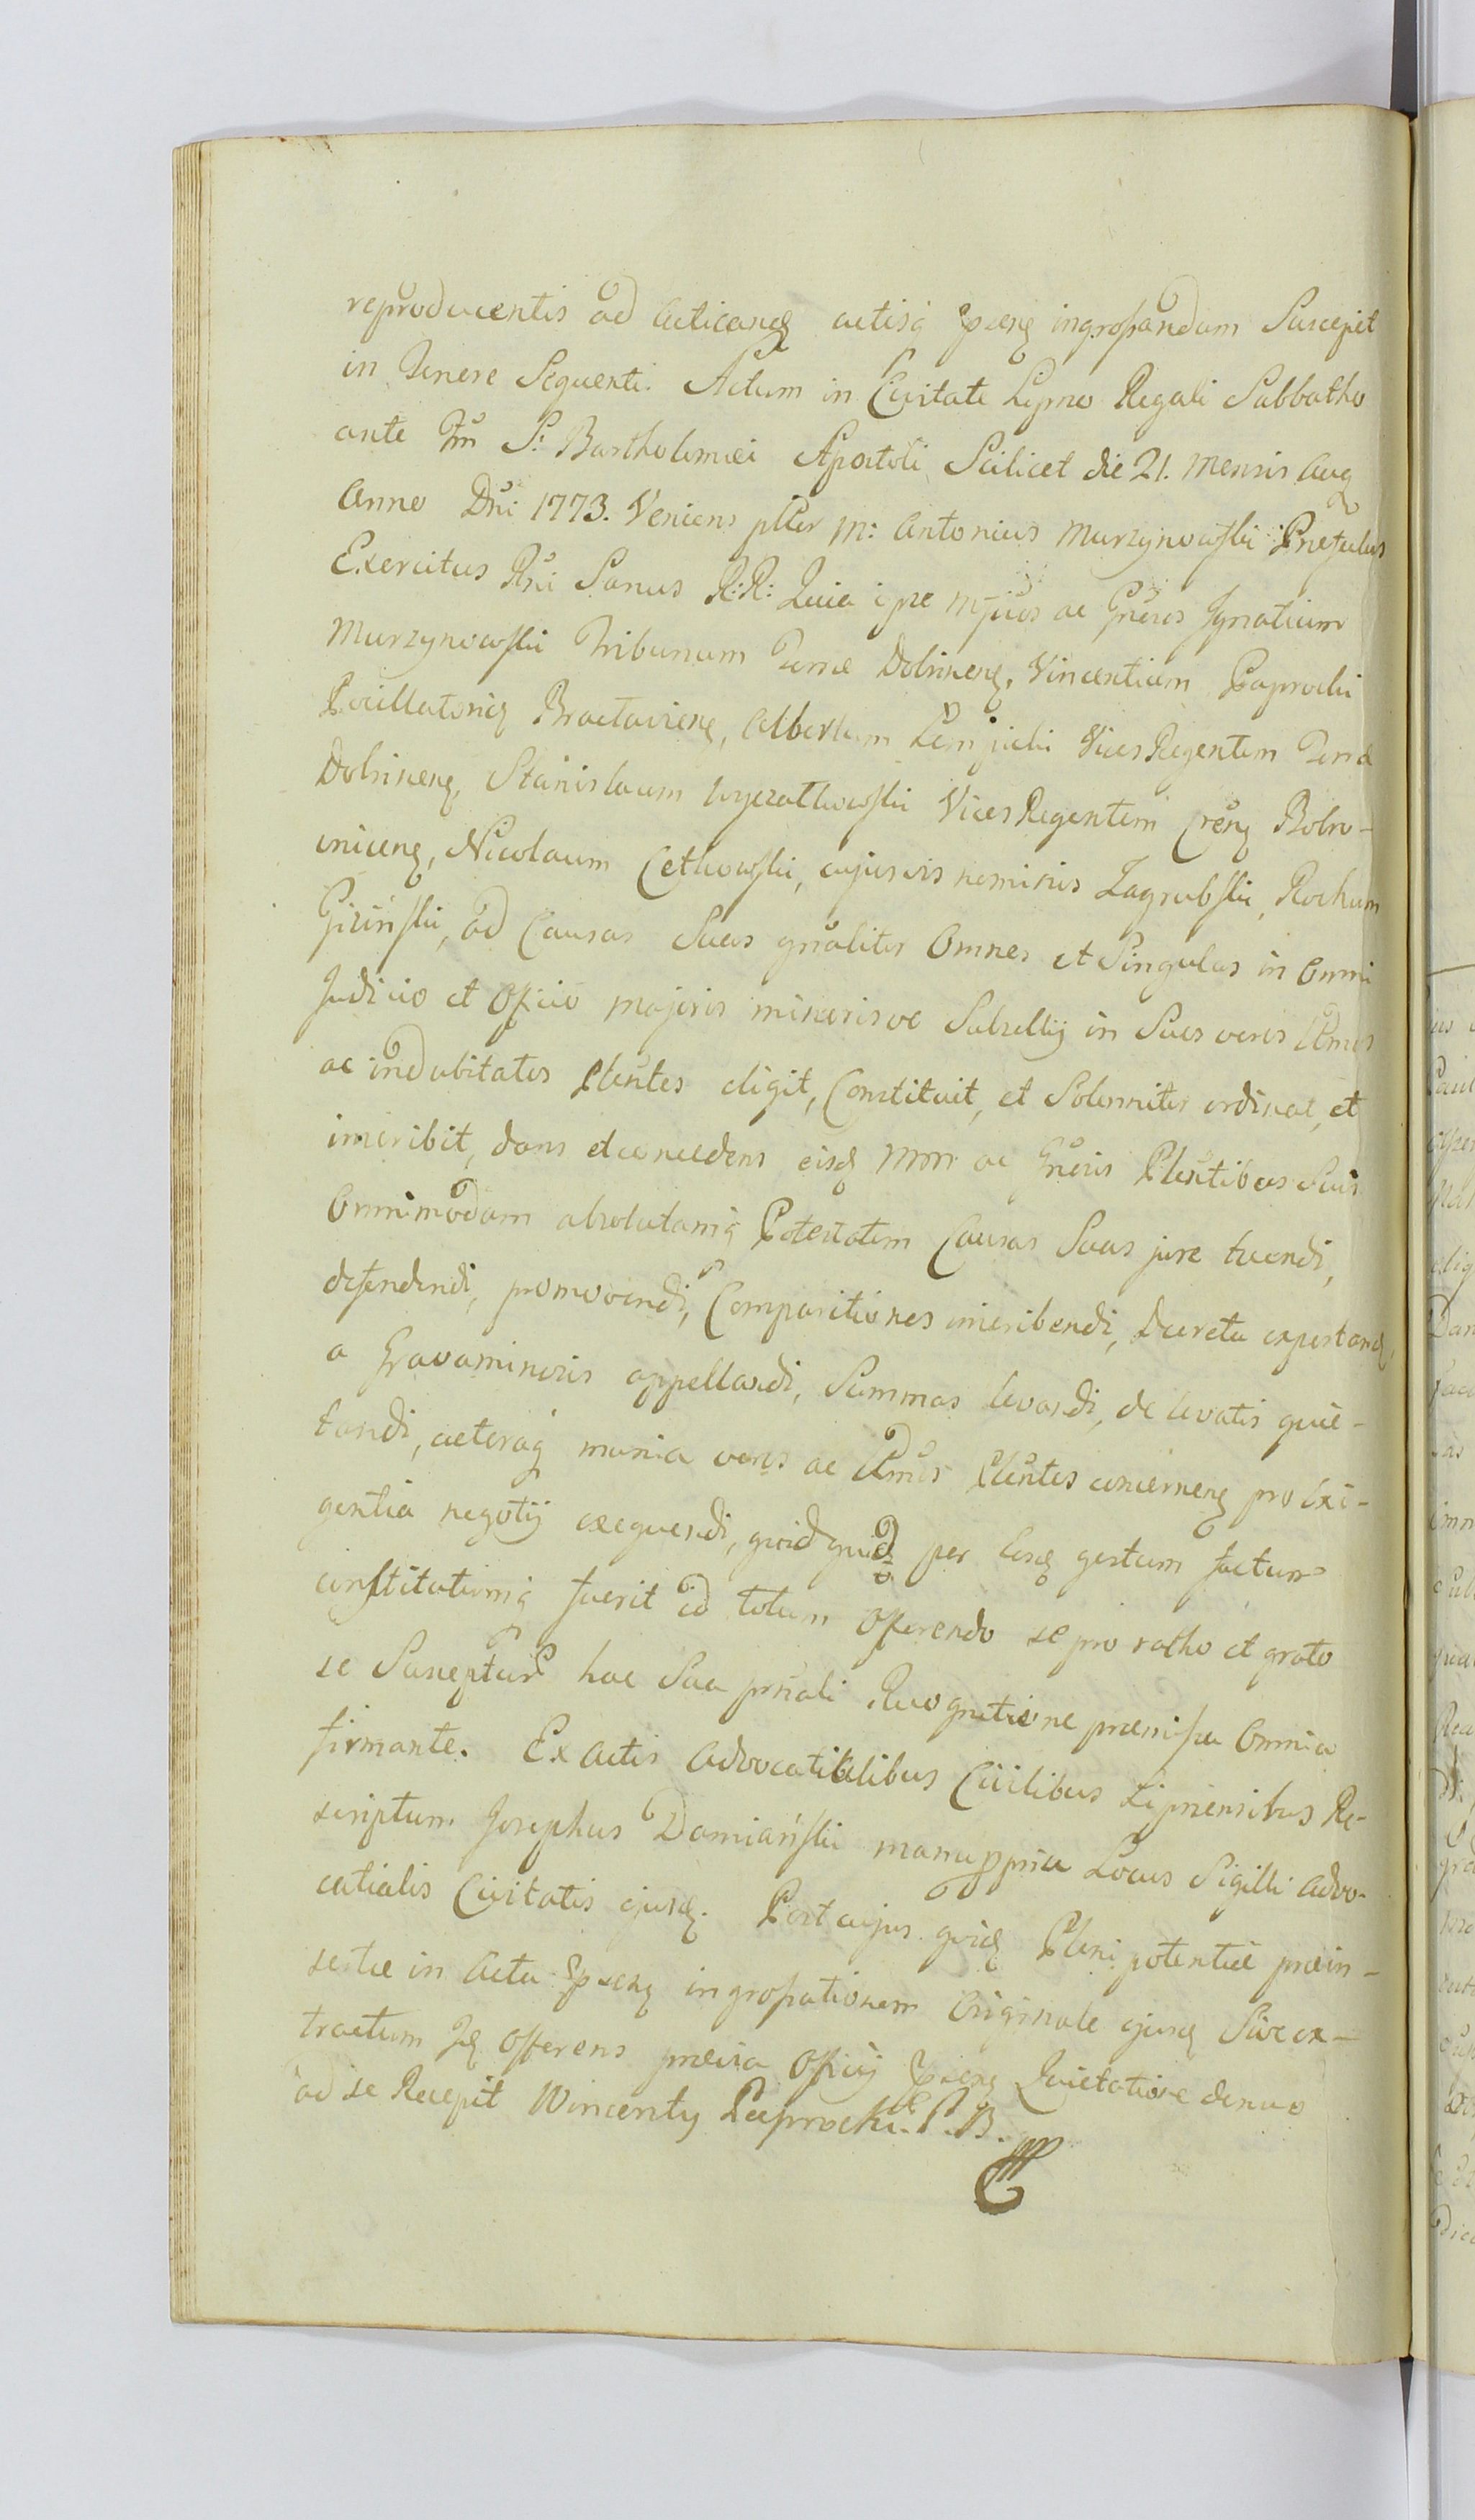 reproducentis ad acticand actisq psentibus ingrossandum Suscepit
in Tenore Sequenti. Actum in Civitate Lipno Regali Sabbatho
ante Ftm S: Bartholomæi Apostoli Scilicet die 21. Mensis Aug
Anno Dni 1773. Veniens plter M: Antonius Murzynowski Præfectus
Exercitus Rni Sanus R:R: Quia ipse Mfcos ac Gnros Ignatium
Murzynowski Tribunum Terræ Dobrinen, Vincentium Paprocki
Pocillatorię Braclavien, Albertum Lempicki Vices Regentem Terræ
Dobrinen, Stanislaum Wyczałkowski Vices Regentem Cren Bobro-
vnicen, Nicolaum Cetkowski, cujusvis nominis Zagrubski, Rochum
Giżiński, ad Causas Suas gnaliter Omnes et Singulas in Omni
Judicio et Officio Majoris minorisve Subsellij in Suos veros Ltmos
ac indubitatos Plentes eligit, Constituit, et Solemniter ordinat, et
inscribit, dans et concedens eisd Mtn ac Gnris Plentibus Suis
Omnimodam absolutamq Potestatem Causas Suas jure tuendi,
defendendi, promovendi, Comparitiones inscribendi, Decreta exportand,
a Gravaminosis appellandi, Summas levandi, de levatis quie-
tandi, cæteraq munia veros ac Ltmos Plentes concernen pro exi-
gentia negotij exequendi, quidquid per eosd gestum factum
constitutumq fuerit id totum Offerendo se pro ratho et grato
se Suscepturu hac Sua prsnali Recognitione præmissa Omnia
firmante. Ex Actis Advocatialibus Civilibus Lipnensibus Re-
scriptum Josephus Damiański manuppria Locus Sigilli Advo-
catialis Civitatis ejusd. Post cujus quid Plenipotentiæ præin-
sertæ in Acta psen ingrossationem Originale ejusd Sive ex-
tractum Id Offerens prævia Officij psen Quietatione denuo
ad se Recepit Wincenty Paprocki. P. B.